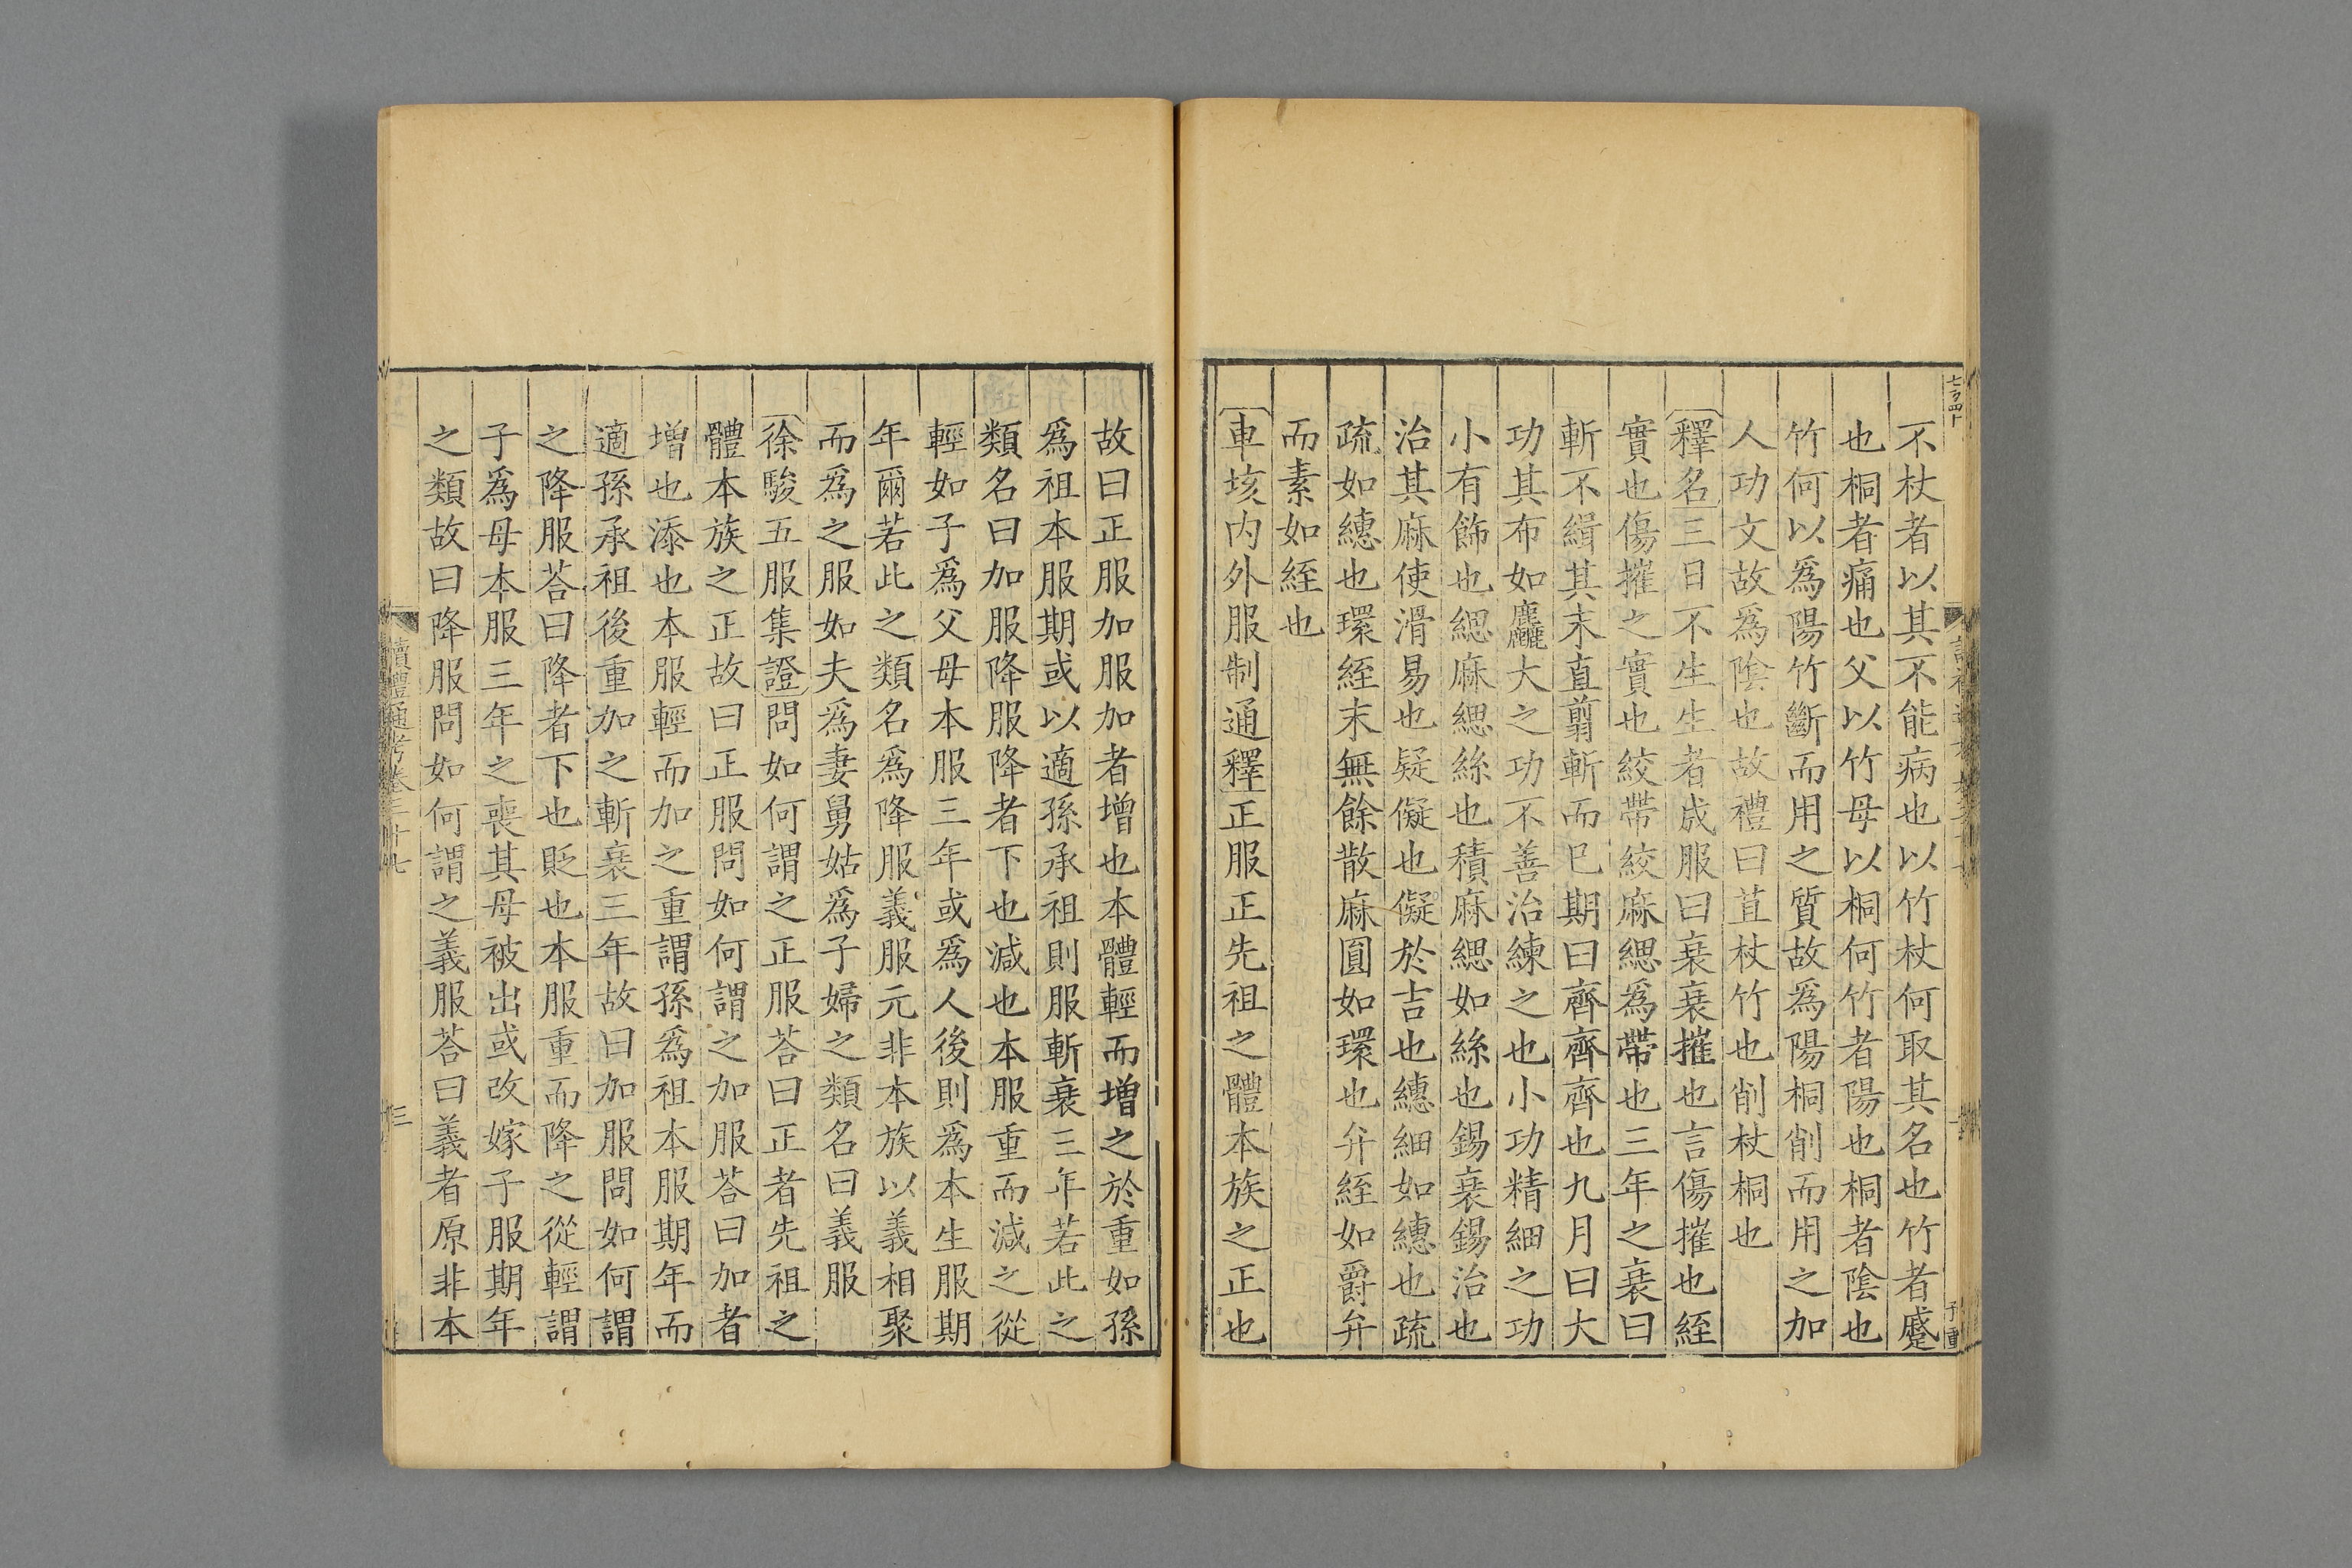 不杖者以其不能病也以竹杖何取其名也竹者蹙
也桐者痛也父以竹母以桐何竹者陽也桐者陰也
竹何以爲陽竹斷而用之質故爲陽桐削而用之加
人功文故爲陰也故禮曰苴杖竹也削杖桐也
釋名三日不生生者成服曰衰衰摧也言傷摧也絰
實也傷摧之實也絞帶絞麻緦爲帶也三年之衰曰
斬不緝其末直翦斬而已期曰齊齊齊也九月曰大
功其布如麤大之功不善治練之也小功精細之功
小有飾也緦麻緦絲也積麻緦如絲也錫衰錫治也
治其麻使滑易也疑儗也儗於吉也繐細如繐也疏
疏如繐也環絰末無餘散麻圓如環也弁絰如爵弁
而素如絰也
車垓内外服制通釋正服正先祖之體本族之正也
故曰正服加服加者增也本體輕而增之於重如孫
爲祖本服期或以適孫承祖則服斬衰三年若此之
類名曰加服降服降者下也減也本服重而減之從
輕如子爲父母本服三年或爲人後則爲本生服期
年爾若此之類名爲降服義服元非本族以義相聚
而爲之服如夫爲妻舅姑爲子婦之類名曰義服
徐駿五服集證問如何謂之正服荅曰正者先祖之
體本族之正故曰正服問如何謂之加服荅曰加者
增也添也本服輕而加之重謂孫爲祖本服期年而
適孫承祖後重加之斬衰三年故曰加服問如何謂
之降服荅曰降者下也貶也本服重而降之從輕謂
子爲母本服三年之喪其母被出或改嫁子服期年
之類故曰降服問如何謂之義服荅曰義者原非本
讀禮通考卷三十七
十三